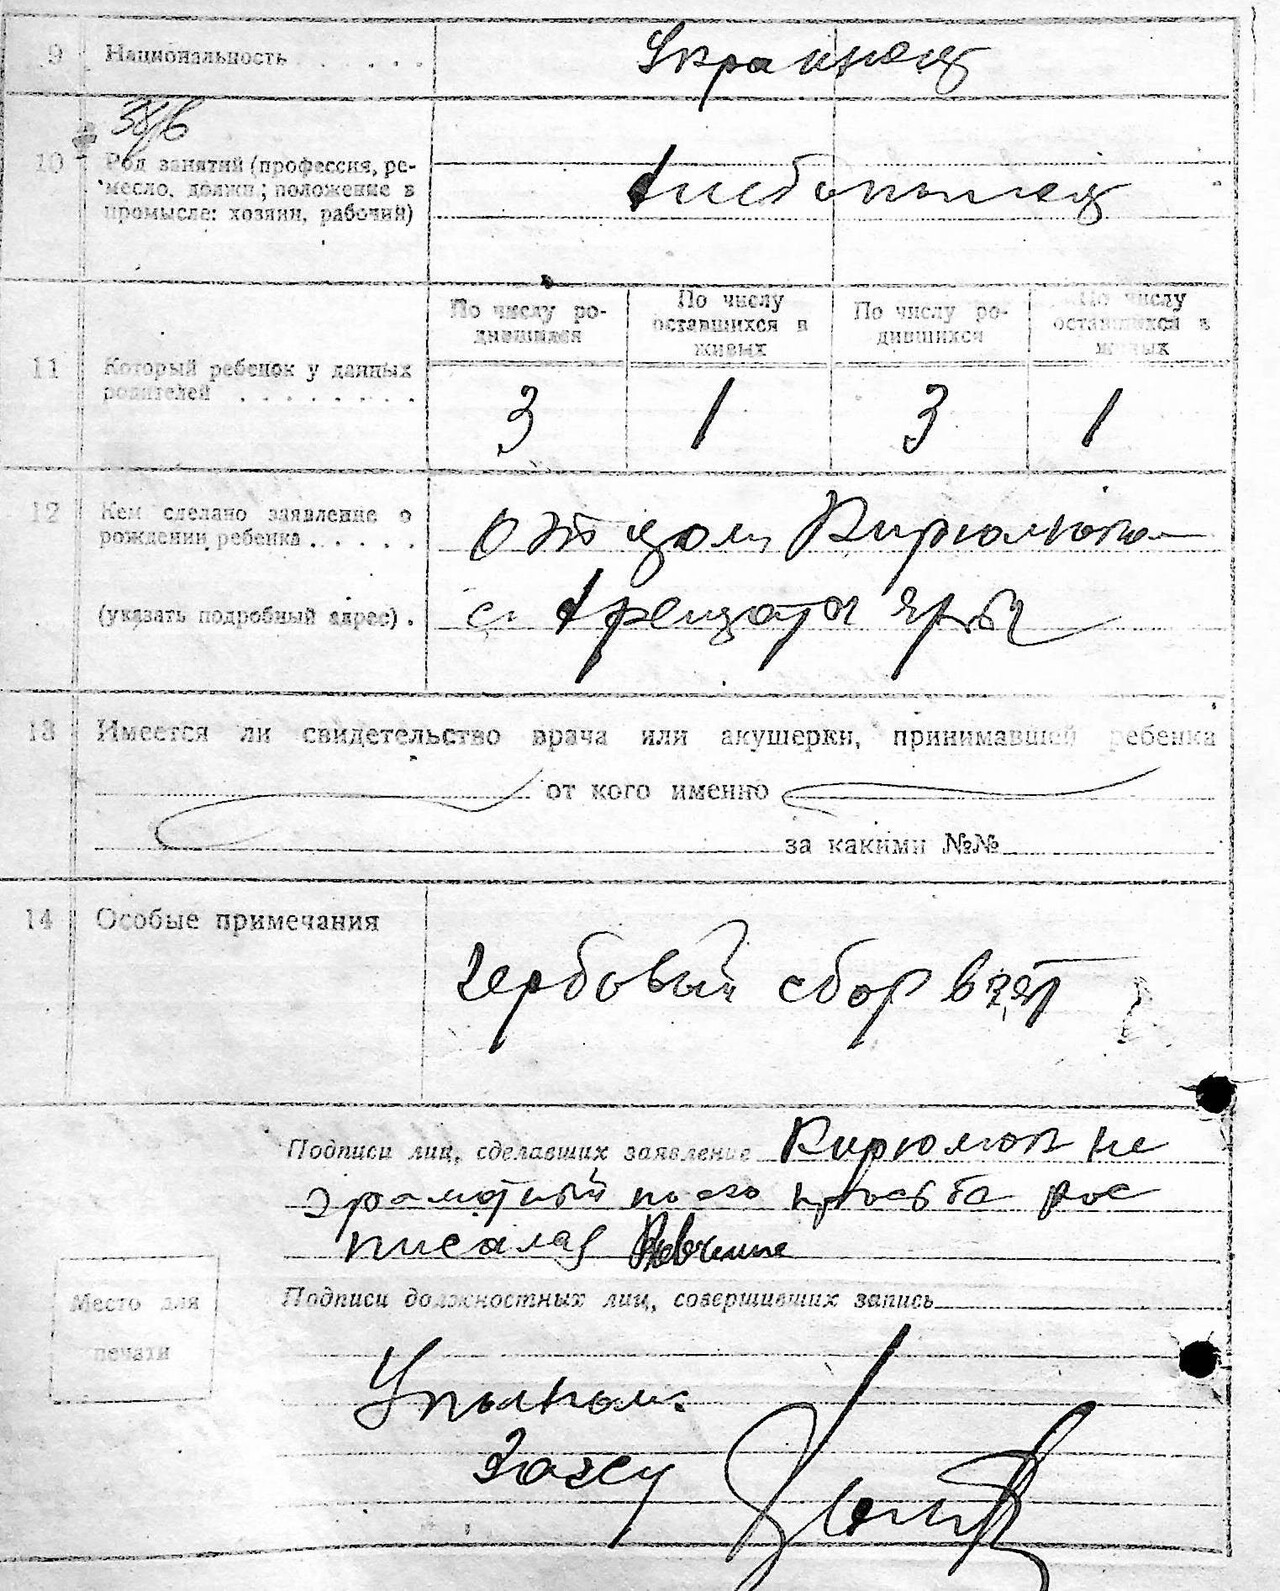 9 Национальность . . . . . . Украинец
38/б
10 Род занятий (профессия, ре-
месло, должн; положение в
промысле: хозяин, рабочий)
Хлебопашец
По числу ро-
дившихся
По числу
оставшихся в
живых
По числу ро-
дившихся
По числу
оставшихся в
живых
11 Который ребенок у данных
родителей . . . . . . . .
3 1 3 1
12 Кем сделано заявление о
рождении ребенка . . . . .
отцом Кирюшкой
(указать подробный адрес) .
с.
13 Имеется ли свидетельство врача или акушерки, принимавшей ребенка
от кого именно
за какими №№
14 Особые примечания
гербовый сбор взят
Подписи лиц, сделавших заявление не
грамотный по его просьба рас
писалась
Место для
печати
Подписи должностных лиц, совершивших запись